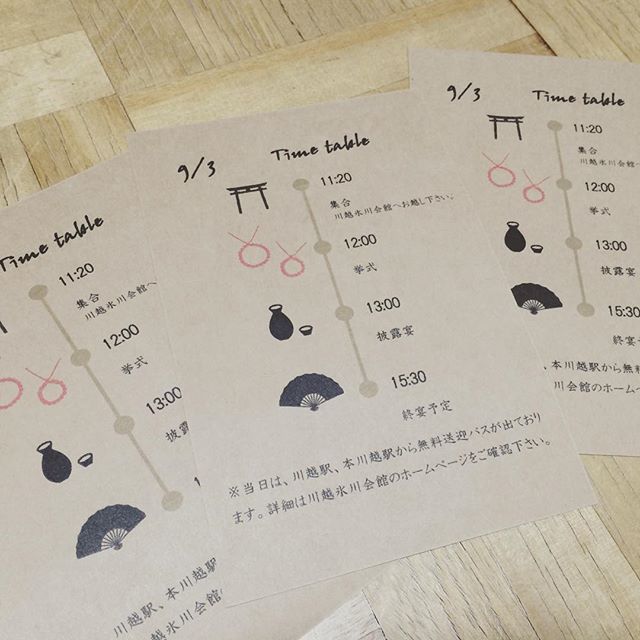 Time table
11:20
集合
川越氷川会館へ
12:00
挙式
13:00
披露
川越駅、本川越駅
川越氷川会館の
9/3
Time table
11:20
集合
川越氷川会館へお越し下さい。
12:00
挙式
13:00
披露宴
15:30
終宴予定
※当日は、川越駅、本川越駅から無料送迎バスが出ており
ます。詳細は川越氷川会館のホームページをご確認下さい。
9/3
Time table
11:20
集合
川越氷川会館へお越し下さ
12:00
挙式
13:00
披露宴
15:30
終宴予
、本川越駅から無料
川会館のホームペ